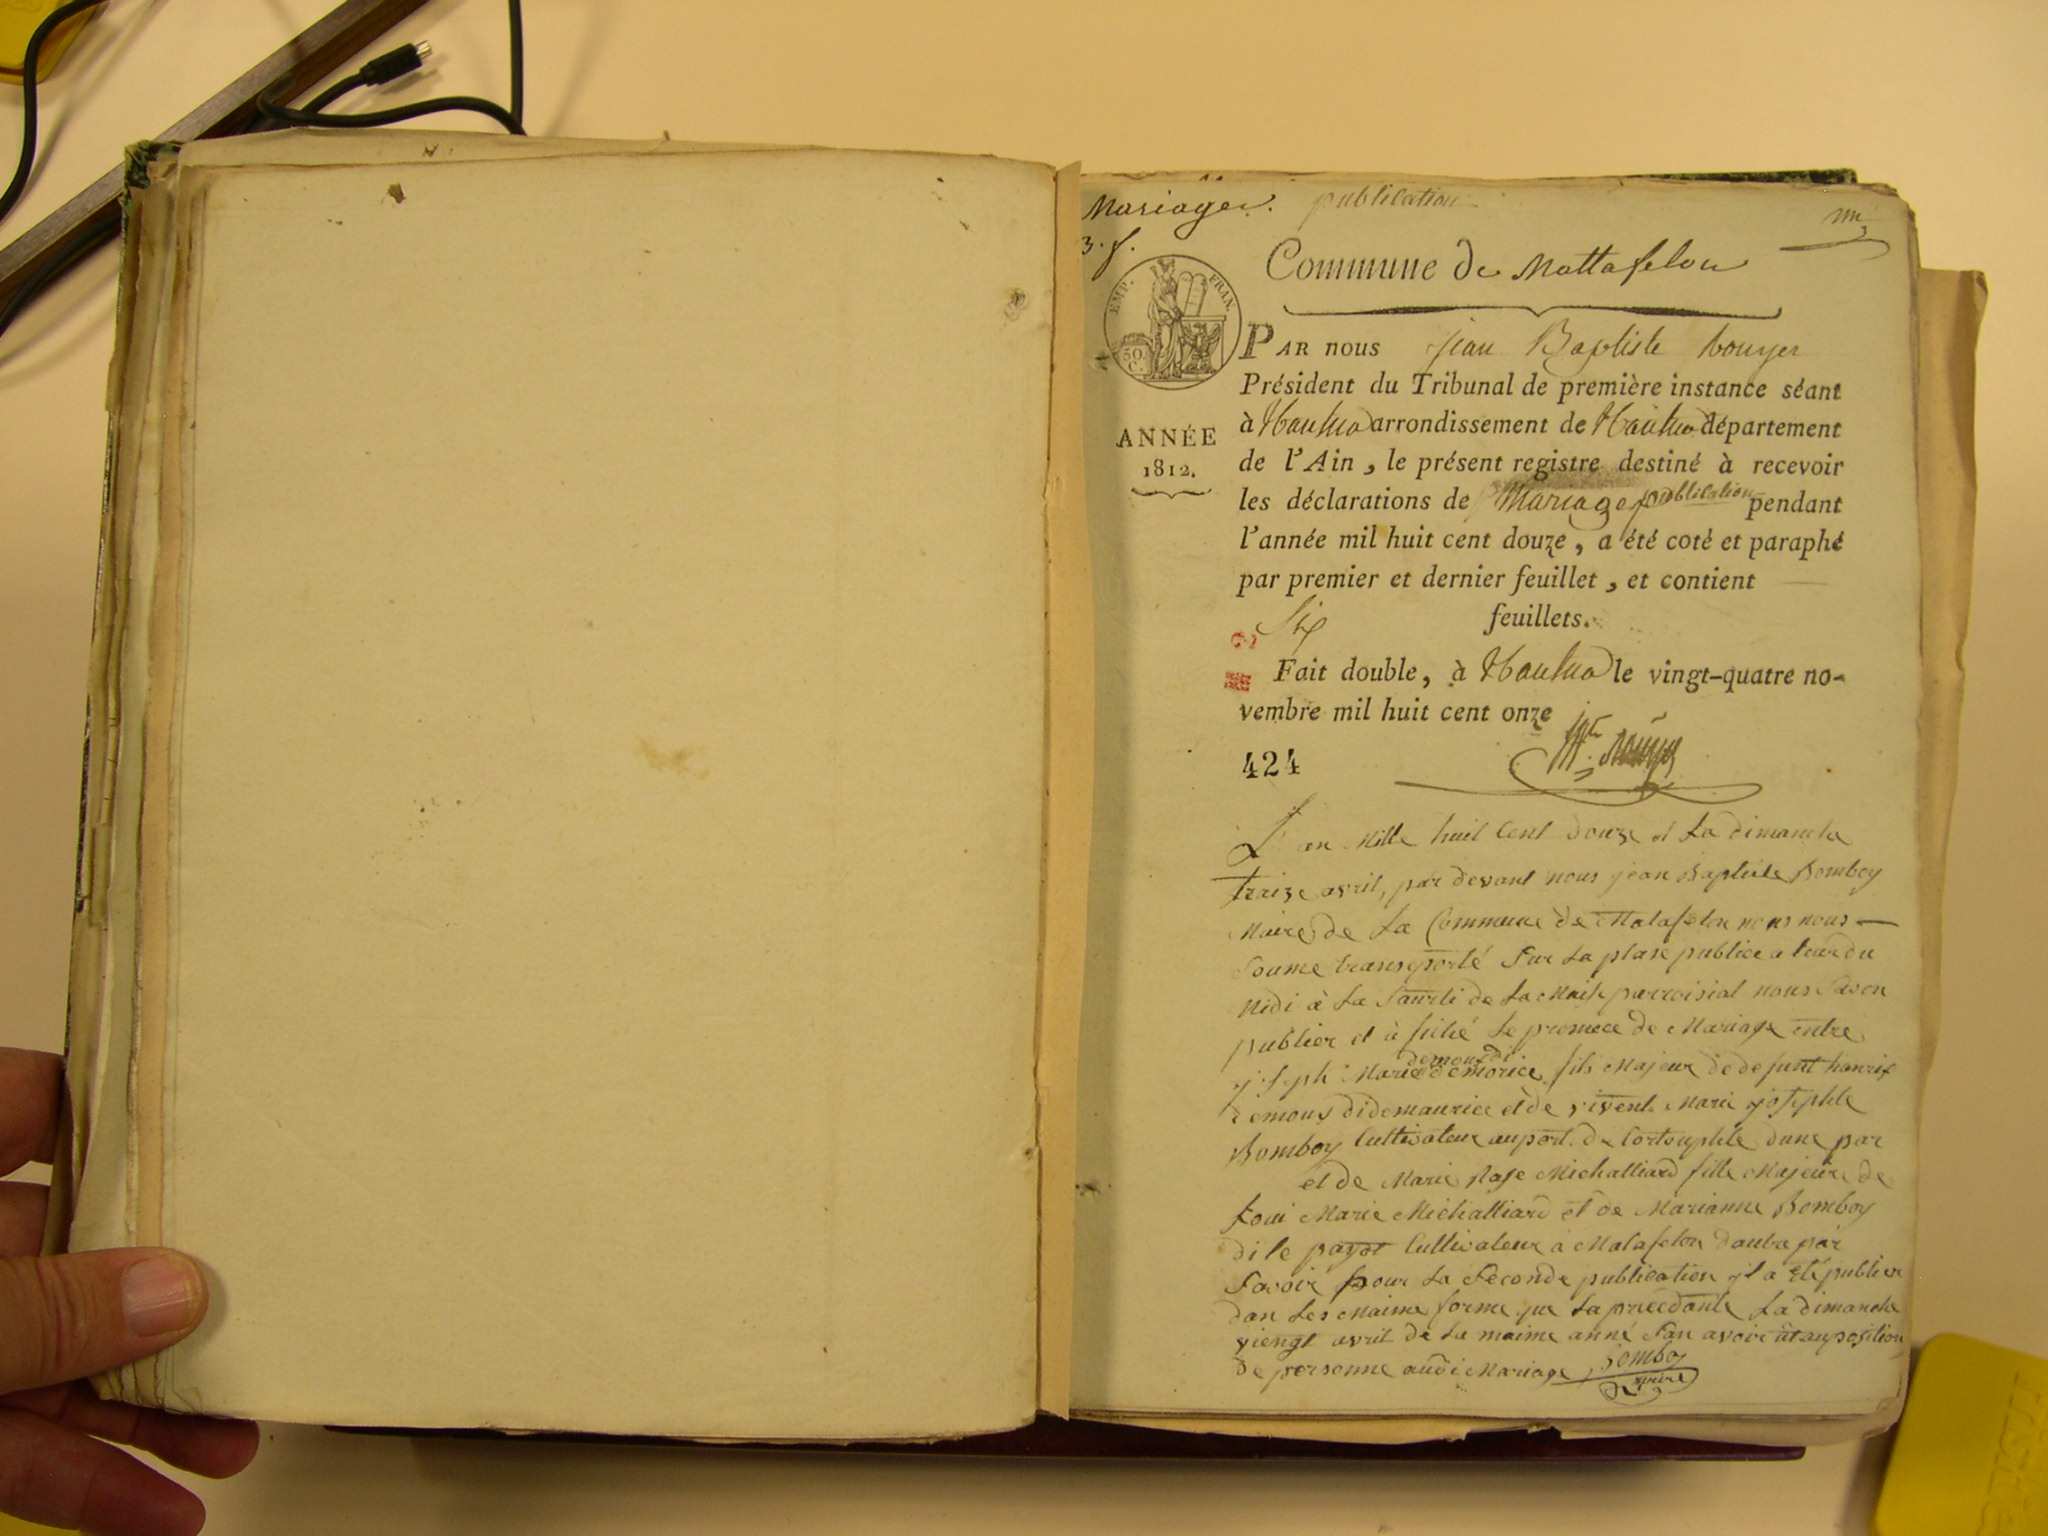 Mariages. publication
3. f.
Commune de Mattafelon
EMP. FRAN.
50. C.
ANNÉE
1812.
PAR nous jean Baptiste Rouyer
Président du Tribunal de première instance séant
à Nantua arrondissement de Nantua département
de l'Ain, le présent registre destiné à recevoir
les déclarations de Mariage publication pendant
l'année mil huit cent douze, a été coté et paraphé
par premier et dernier feuillet, et contient
Six feuillets.
Fait double, à Nantua le vingt-quatre no-
vembre mil huit cent onze
424
L'an Mille huit Cent douze et La dimanche
traize avril, par devant nous jean Baptiste Bomboy
Maire de La Commune de Matafelon nous nous
soume transporté sur La plase publice a leurdu
Midi à La Saurti de La Maise parroisial nous Savon
publier et à fiché Le promece de Mariage entre
joseph Marie demouxdi demorice fils Majeur de defunt hanrix
demoux didemaurice et de vivent Marie josephte
Bomboy Cultivateur auport de Cortouphle dune par
et de Marie Rose Michalliard fille Majeure de
Loui Marie Michalliard et de Marianne Bomboy
di le payot Cultivateur a Matafelon dautre par
Savoir pour La Seconde publication yl a été publier
dan Les Maime forme que La precedante La dimanche
viengt avril de La maime anné San avoir ut auposition
de personne audi Mariage Bomboy
maire